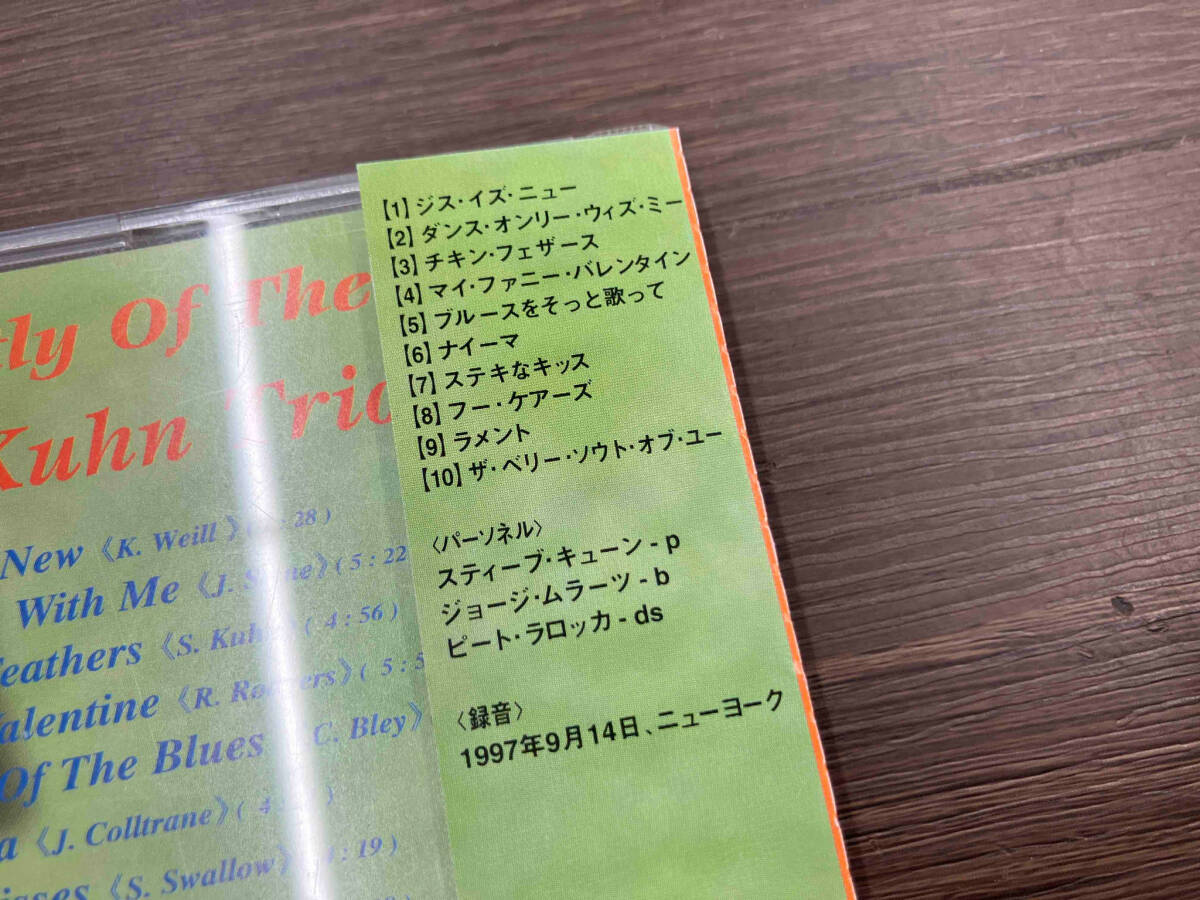 【1】ジス・イズ・ニュー
【2】ダンス・オンリー・ウィズ・ミー
【3】チキン・フェザース
【4】マイ・ファニー・バレンタイン
【5】ブルースをそっと歌って
【6】ナイーマ
【7】ステキなキッス
【8】フー・ケアーズ
【9】ラメント
【10】ザ・ベリー・ソウト・オブ・ユー
〈パーソネル〉
スティーブ・キューン - p
ジョージ・ムラーツ - b
ピート・ラロッカ - ds
〈録音〉
1997年9月14日、ニューヨーク
Of The
Kuhn Trio
New 《K. Weill》
With Me 《J. 》( 5 : 22
eathers 《S. ( 4 : 56 )
alentine 《R. 》
Of The Blues C. Bley》
a 《J. Colltrane》
isses 《S. Swallow》 : 19 )